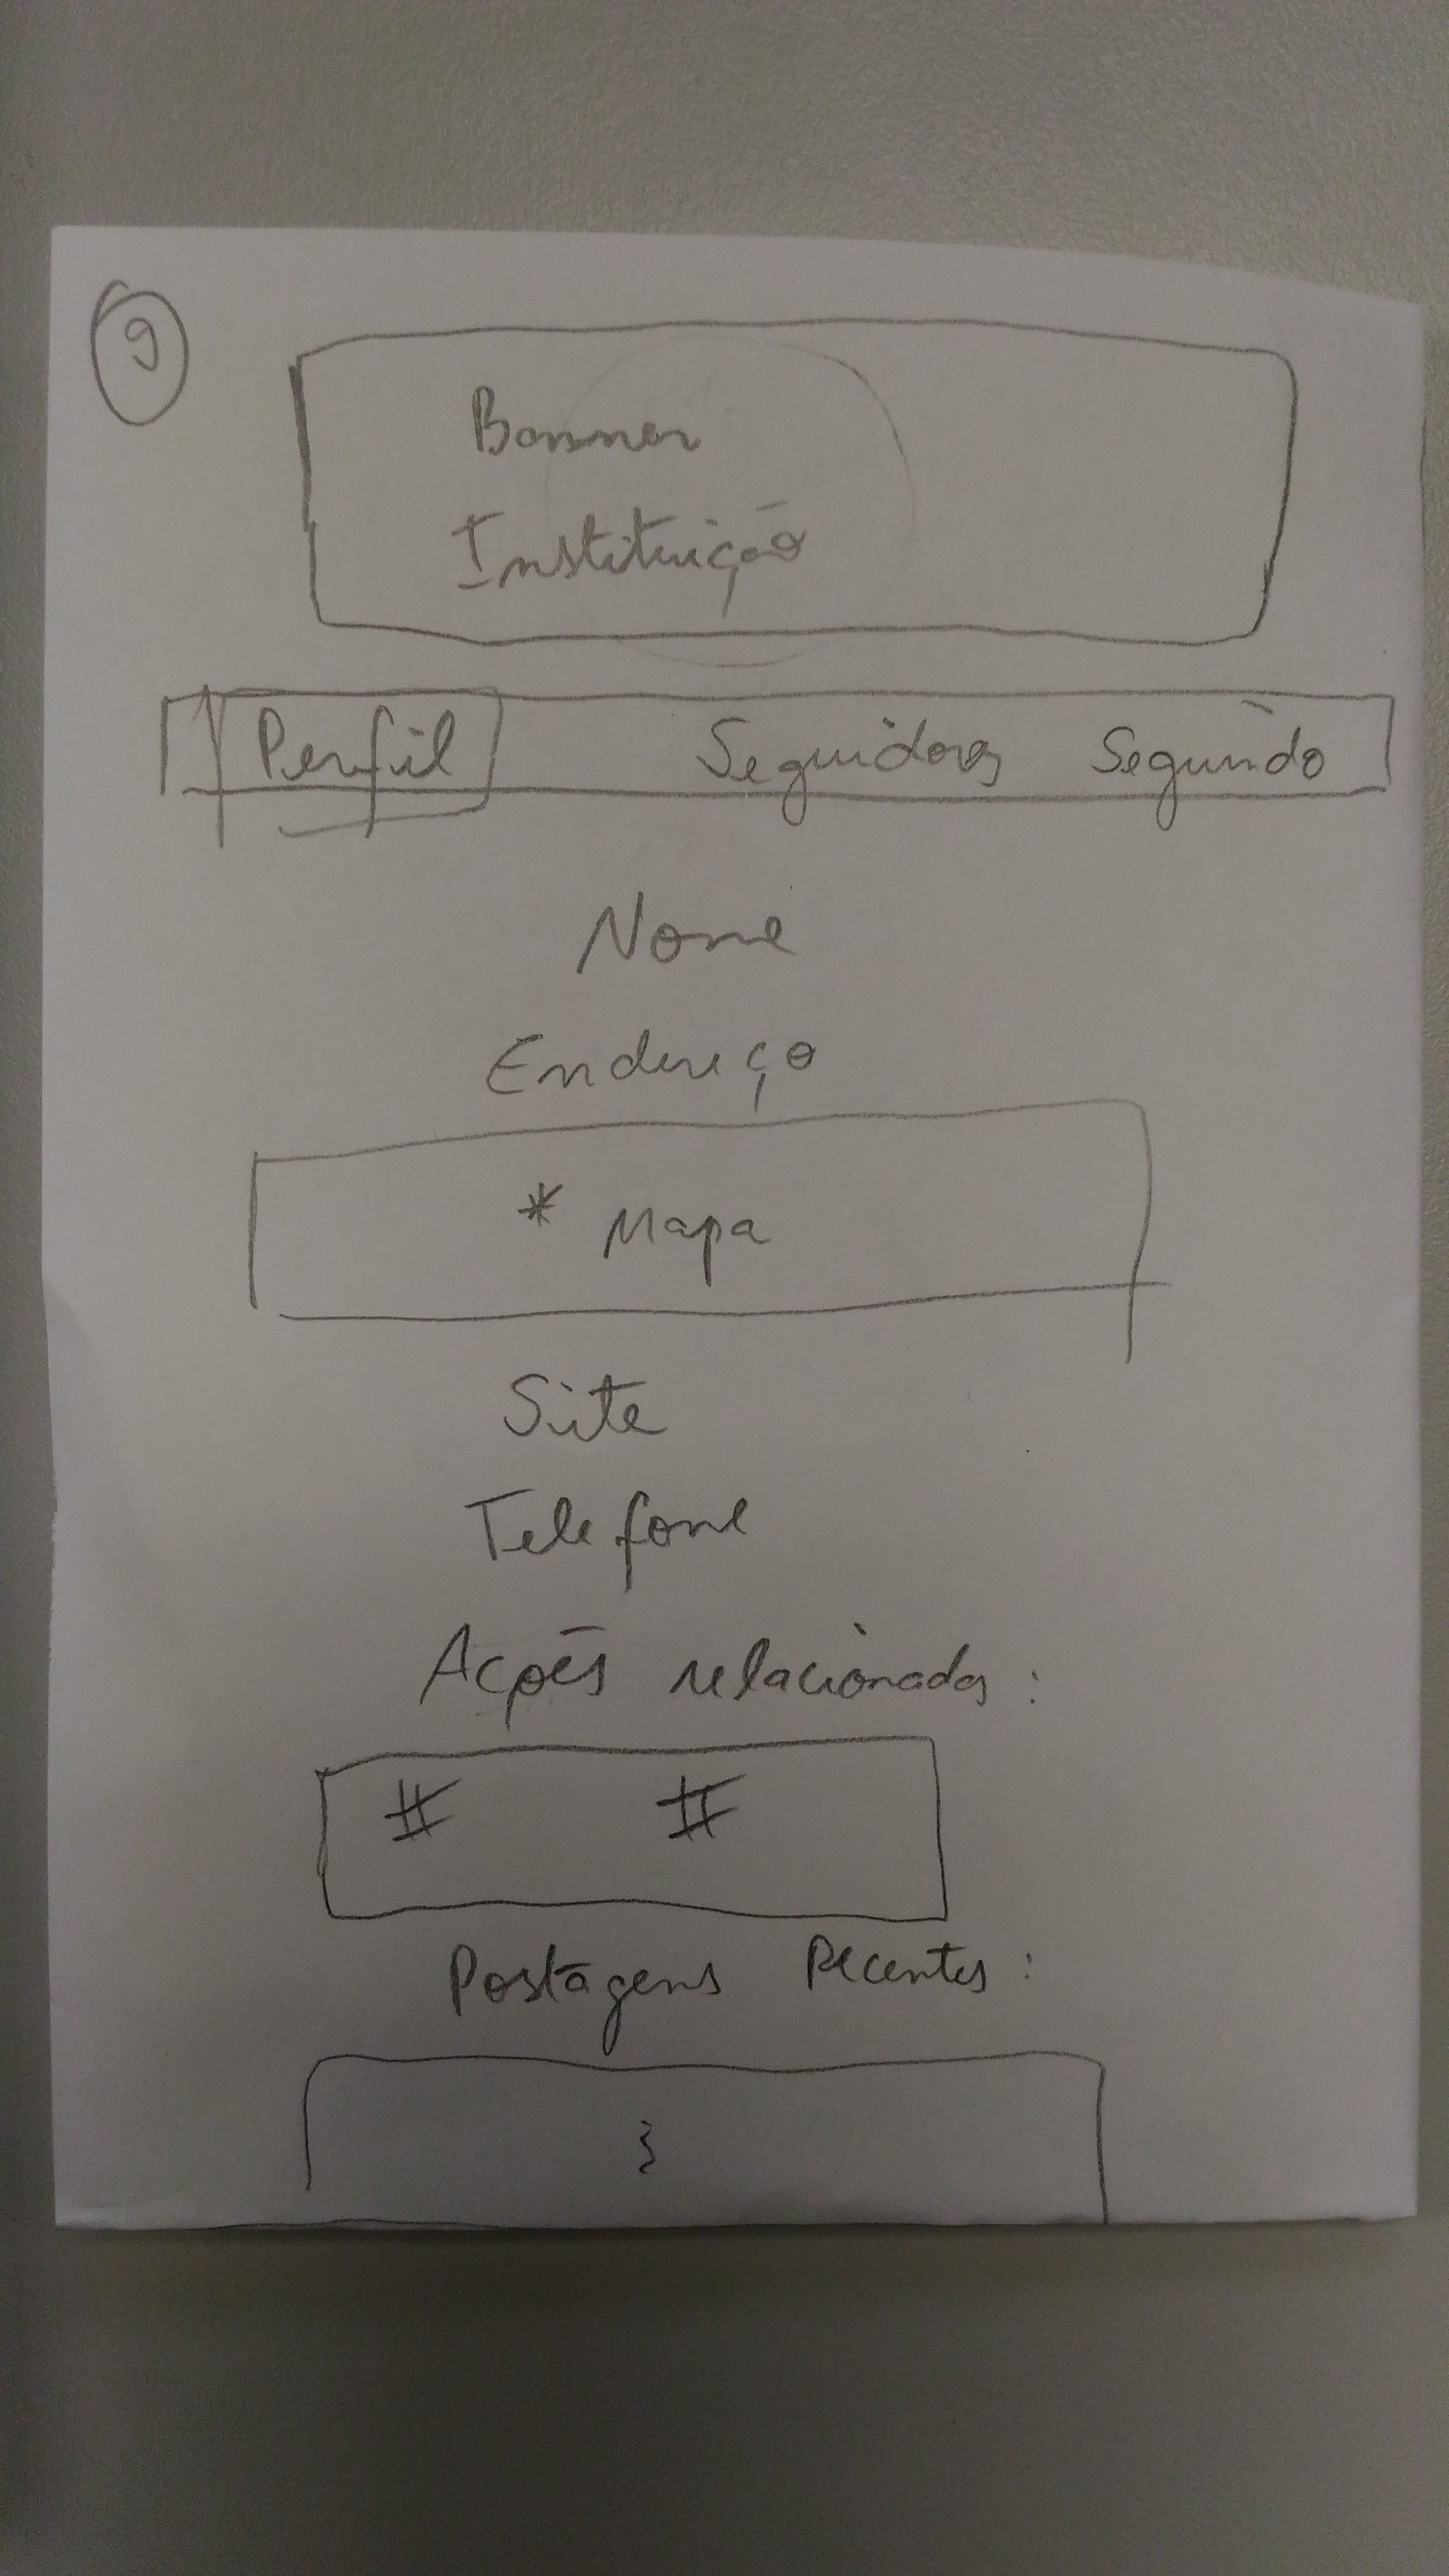 9
Banner
Instituição
Perfil Seguidores Seguindo
Nome
Endereço
* Mapa
Site
Telefone
Ações relacionadas:
# #
Postagens Recentes: